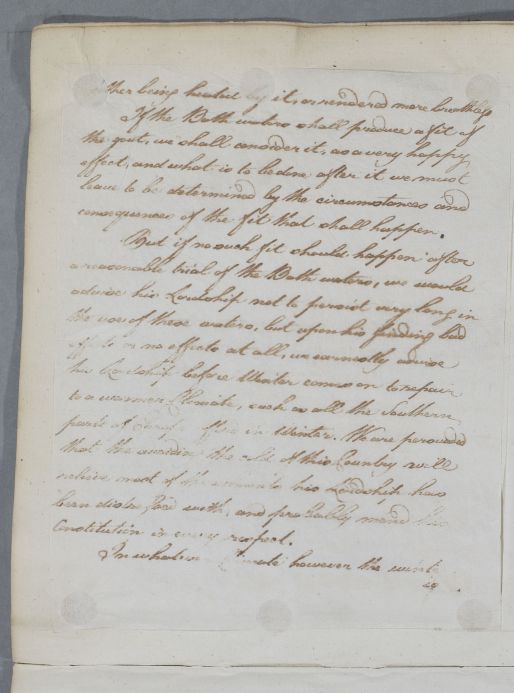 being heated by it, or rendered more breathless
If the Bath waters shall produce a fit of
the gout, we shall consider it, as a very happy
effect, and what is to be done after it we must
leave to be determined by the circumstances and
consequences of the fit that shall happen.
But if no such fit should happen after
a reasonable trial of the Bath waters, we would
advise his Lordship not to persist very long in
the use of these waters, but upon his finding bad
effects or no effects at all, we earnestly advise
his Lordship before Winter comes on to repair
to a warmer Climate, such as all the Southern
parts of in Winter. We are persuaded
that the avoiding the cold of this Country will
relieve most of the his Lordship has
been with, and probably mend his
Constitution in every respect.
In whatever Climate however the winter
is